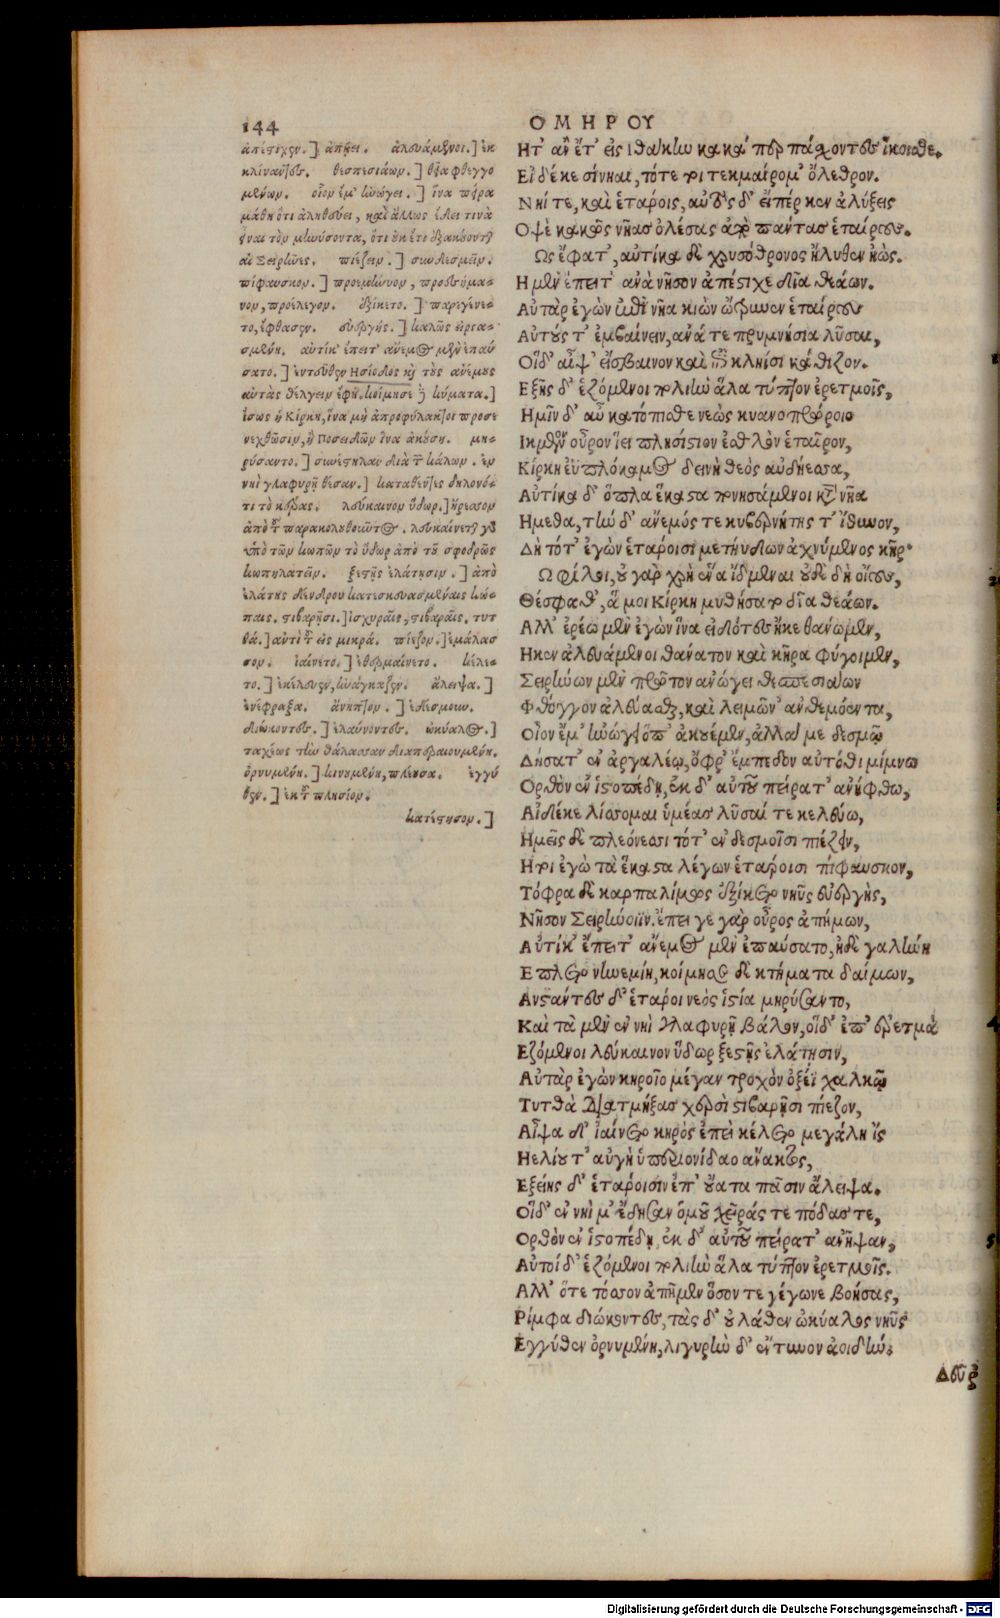 144
ΟΜΗΡΟΥ
ἀπέστιχεν.] ἀπῄει. ἀλευάμενοι.] ἐκ
κλίναντες. θεσπεσιάων.] θεῖα φθεγγο
μένων. οἶον ἔμ' ἠνώγει.] ἵνα πείρᾳ
μάθῃ ὅτι ἀληθεύει, καὶ ἄλλως ἔδει τινὰ
εἶναι τὸν μηνύσοντα, ὅτι οὐκέτι ἐξακούονται
αἱ Σειρῆνες. πιέζειν.] συνδεσμεῖν.
πίφαυσκον.] προεμήνυον, προεσήμαι-
νον, προέλεγον. ἐξίκετο.] παρεγένε-
το, ἔφθασεν. εὐεργής.] καλῶς εἰργα-
σμένη. αὐτίκ' ἔπειτ' ἄνεμος μὲν ἐπαύ
σατο.] ἐντεῦθεν Ησίοδος καὶ τοὺς ἀνέμους
αὐτὰς θέλγειν ἔφη. κοίμησε δὲ κύματα.]
ἴσως ἡ Κίρκη, ἵνα μὴ ἀπροφύλακτοι προσε
νεχθῶσιν, ἢ Ποσειδῶν ἵνα ἀκούσῃ. μη-
ρύσαντο.] συνέστειλαν διὰ τῶν κάλων. ἐν
νηῒ γλαφυρῇ θέσαν.] καταθέντες δηλονό-
τι τὸ κέρας. λεύκαινον ὕδωρ.] ἤρεσσον
ἀπὸ τοῦ παρακολουθοῦντος. λευκαίνεται γὰρ
ὑπὸ τῶν κωπῶν τὸ ὕδωρ ἀπὸ τοῦ σφοδρῶς
κωπηλατεῖν. ξεστῇς ἐλάτῃσιν.] ἀπὸ
ἐλάτης δένδρου κατεσκευασμέναις κώ-
παις. στιβαρῇσι.] ἰσχυραῖς, στιβαραῖς. τυτ
θά.] ἀντὶ τοῦ εἰς μικρά. πίεζον.] ἐμάλασ
σον. ἰαίνετο.] ἐθερμαίνετο. κέλε-
το.] ἐκέλευεν, ἠνάγκαζεν. ἄλειψα.]
ἐνέφραξα. ἀνῆπτον.] ἐδέσμουν.
διώκοντες.] ἐλαύνοντες. ὠκύαλος.]
ταχέως τὴν θάλασσαν διαπεραιουμένη.
ὀρνυμένη.] κινουμένη, πλέουσα. ἐγγύ
θεν.] ἐκ τοῦ πλησίον.
κατέτησον.]
Ητ' ἂν ἔτ' εἰς Ιθάκην κακά περ πάσχοντες ἵκοισθε.
Εἰ δέ κε σίνηαι, τότε τοι τεκμαίρομ' ὄλεθρον.
Νηΐ τε, καὶ ἑτάροις, αὐτὸς δ' εἴπέρ κεν ἀλύξεις
Οψὲ κακῶς νῆας ὀλέσας ἄπο πάντας ἑταίρους.
Ως ἔφατ', αὐτίκα δὲ χρυσόθρονος ἤλυθεν ἠώς.
Η μὲν ἔπειτ' ἀνὰ νῆσον ἀπέστιχε δῖα θεάων.
Αὐτὰρ ἐγὼν ἐπὶ νῆα κιὼν ὤτρυνον ἑταίρους
Αὐτούς τ' ἐμβαίνειν, ἀνά τε πρυμνήσια λῦσαι,
Οἵδ' αἶψ' εἴσβαινον καὶ ἐπὶ κληῖσι κάθιζον.
Εξῆς δ' ἑζόμενοι πολιὴν ἅλα τύπτον ἐρετμοῖς,
Ημῖν δ' αὖ κατόπισθε νεὼς κυανοπρώροιο
Ικμενον οὖρον ἵει πλησίστιον ἐσθλὸν ἑταῖρον,
Κίρκη ἐϋπλόκαμος δεινὴ θεὸς αὐδήεσσα,
Αὐτίκα δ' ὅπλα ἕκαστα πονησάμενοι κατὰ νῆα
Ημεθα, τὴν δ' ἄνεμός τε κυβερνήτης τ' ἴθυνον,
Δὴ τότ' ἐγὼν ἑτάροισι μετηύδων ἀχνύμενος κῆρ·
Ω φίλοι, οὐ γὰρ χρὴ ἕνα ἴδμεναι οὐδὲ δὴ οἴους,
Θέσφαθ', ἅ μοι Κίρκη μυθήσατο δῖα θεάων.
Αλλ' ἐρέω μὲν ἐγὼν ἵνα εἰδότες ἤκε θάνωμεν,
Ηκεν ἀλευάμενοι θάνατον καὶ κῆρα φύγοιμεν,
Σειρήνων μὲν πρῶτον ἀνώγει θεσπεσιάων
Φθόγγον ἀλεύασθαι, καὶ λειμῶν' ἀνθεμόεντα,
Οἶον ἔμ' ἠνώγει ὄπ' ἀκουέμεν, ἀλλά με δεσμῷ
Δήσατ' ἐν ἀργαλέῳ, ὄφρ' ἔμπεδον αὐτόθι μίμνω
Ορθὸν ἐν ἱστοπέδῃ, ἐκ δ' αὐτοῦ πείρατ' ἀνήφθω,
Αἰ δέ κε λίσσομαι ὑμέας λῦσαί τε κελεύω,
Ημεῖς δὲ πλεόνεσσι τότ' ἐν δεσμοῖσι πιέζειν,
Ητοι ἐγὼ τὰ ἕκαστα λέγων ἑτάροισι πίφαυσκον,
Τόφρα δὲ καρπαλίμως ἐξίκετο νηῦς εὐεργὴς,
Νῆσον Σειρήνοιϊν. ἔπειγε γὰρ οὖρος ἀπήμων,
Αὐτίκ' ἔπειτ' ἄνεμος μὲν ἐπαύσατο, ἡδὲ γαλήνη
Επλετο νηνεμίη, κοίμησε δὲ κτήματα δαίμων,
Ανστάντες δ' ἕταροι νεὸς ἱστία μηρύσαντο,
Καὶ τὰ μὲν ἐν νηῒ γλαφυρῇ βάλον, οἵδ' ἐπ' ἐρετμὰ
Εζόμενοι λεύκαινον ὕδωρ ξεστῇς ἐλάτῃσιν,
Αὐτὰρ ἐγὼν κηροῖο μέγαν τροχὸν ὀξέϊ χαλκῷ
Τυτθὰ διατμήξας χερσὶ στιβαρῇσι πίεζον,
Αἶψα δ' ἰαίνετο κηρὸς ἐπεὶ κέλετο μεγάλη ἲς
Ηελίου τ' αὐγὴ ὑπεριονίδαο ἄνακτος,
Εξείης δ' ἑτάροισιν ἐπ' οὔατα πᾶσιν ἄλειψα.
Οἵδ' ἐν νηΐ μ' ἔδησαν ὁμοῦ χεῖράς τε πόδας τε,
Ορθὸν ἐν ἱστοπέδῃ, ἐκ δ' αὐτοῦ πείρατ' ἀνῆψαν,
Αὐτοὶ δ' ἑζόμενοι πολιὴν ἅλα τύπτον ἐρετμοῖς.
Αλλ' ὅτε τόσσον ἀπῆμεν ὅσον τε γέγωνε βοήσας,
Ρίμφα διώκοντες, τὰς δ' οὐ λάθεν ὠκύαλος νηῦς
Εγγύθεν ὀρνυμένη, λιγυρὴν δ' ἔντυνον ἀοιδήν.
Δεῦρ'
Digitalisierung gefördert durch die Deutsche Forschungsgemeinschaft - DFG